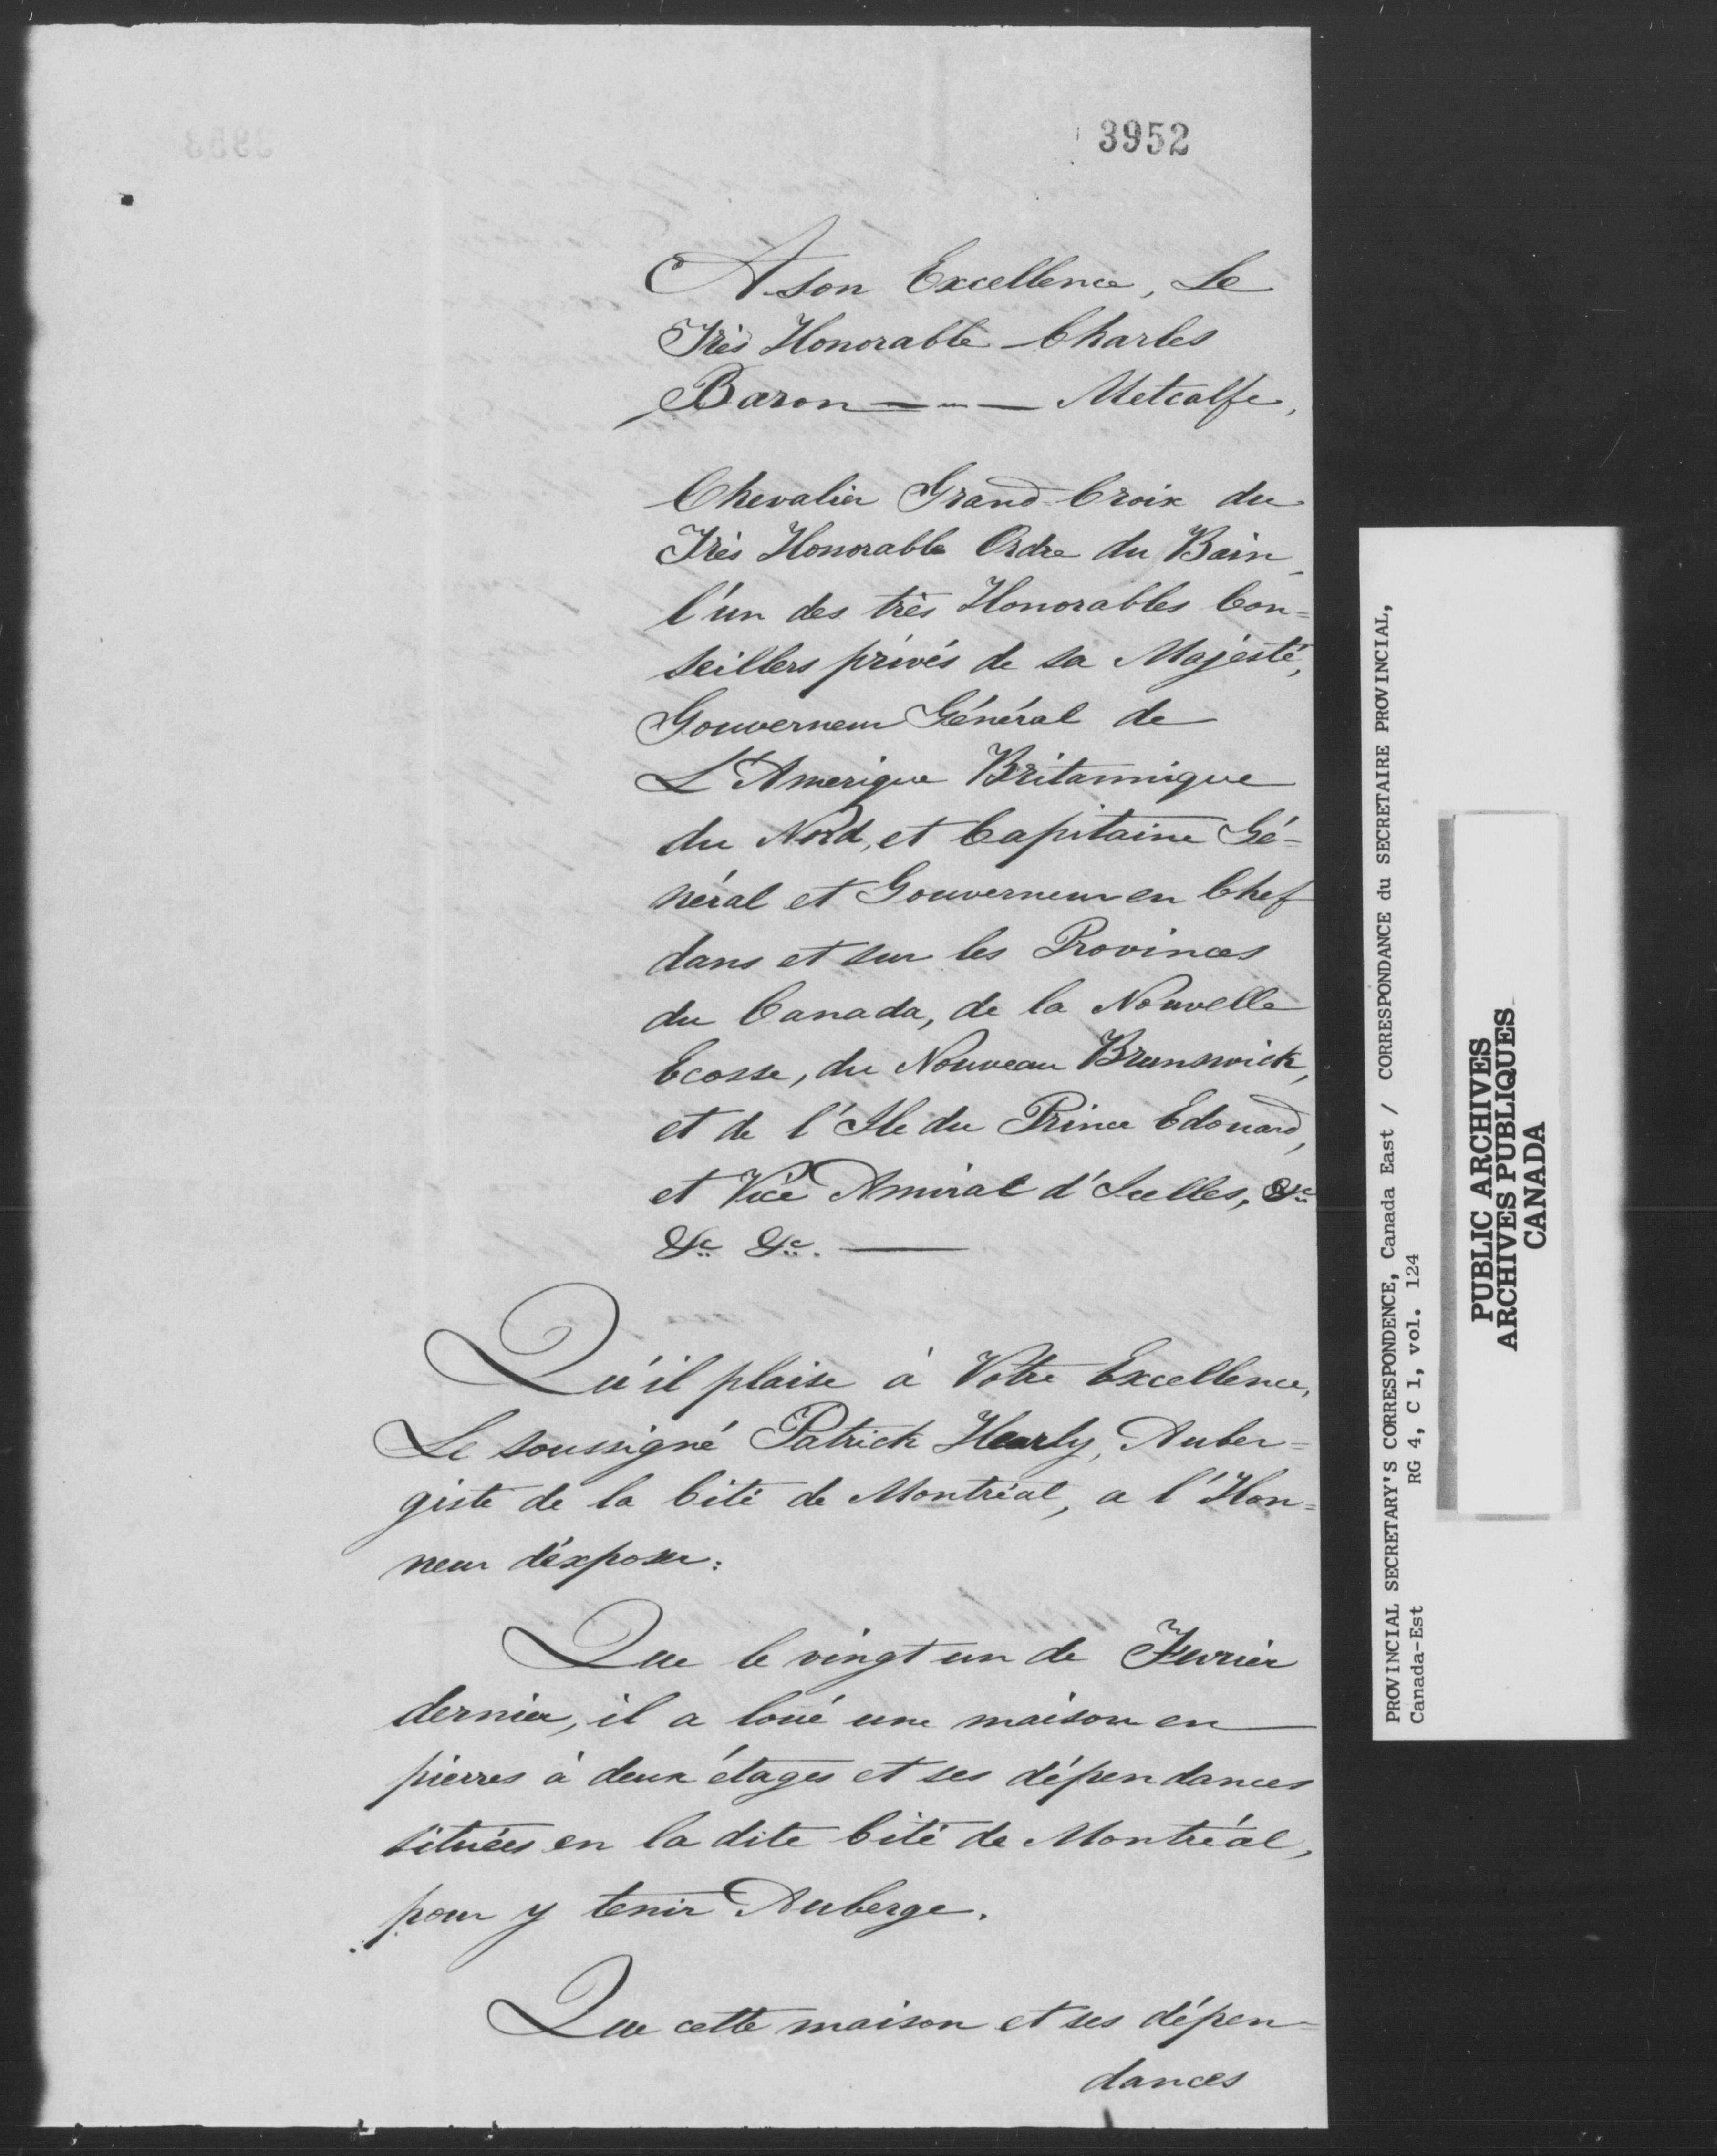 3952
A son Excellence, Le
Très Honorable Charles
Baron — „ — Metcalfe,
Chevalier Grand Croix du
Très Honorable Ordre du Bain,
l'un des très Honorables Con=
seillers privés de sa Majesté,
Gouverneur Général de
L'Amerique Britannique
du Nord, et Capitaine Gé=
néral et Gouverneur en Chef
dans et sur les Provinces
du Canada, de la Nouvelle
Ecosse, du Nouveau Brunswick,
et de l'Ile du Prince Edouard,
et Vice Amiral d'Icelles, &c
&c &c. —
Qu'il plaise à Votre Excellence,
Le soussigné Patrick Hearly, Auber=
giste de la Cité de Montréal, a l'Hon=
neur d'exposer:
Que le vingt un de Fevrier
dernier, il a loué une maison en
pierres à deux étages et ses dépendances
situées en la dite Cité de Montréal,
pour y tenir Auberge.
Que cette maison et ses dépen=
dances
PROVINCIAL SECRETARY'S CORRESPONDENCE, Canada East / CORRESPONDANCE du SECRETAIRE PROVINCIAL,
Canada-Est RG 4, C 1, vol. 124
PUBLIC ARCHIVES
ARCHIVES PUBLIQUES
CANADA